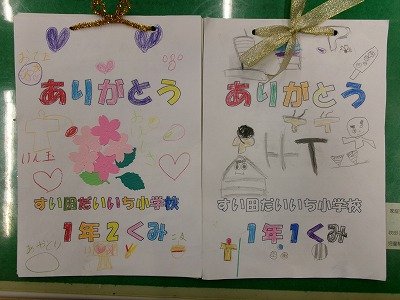 ありがとう
けん玉
すい田だいいち小学校
1年2くみ
あやとり
ありがとう
HT
すい田だいいち小学校
1年1くみ